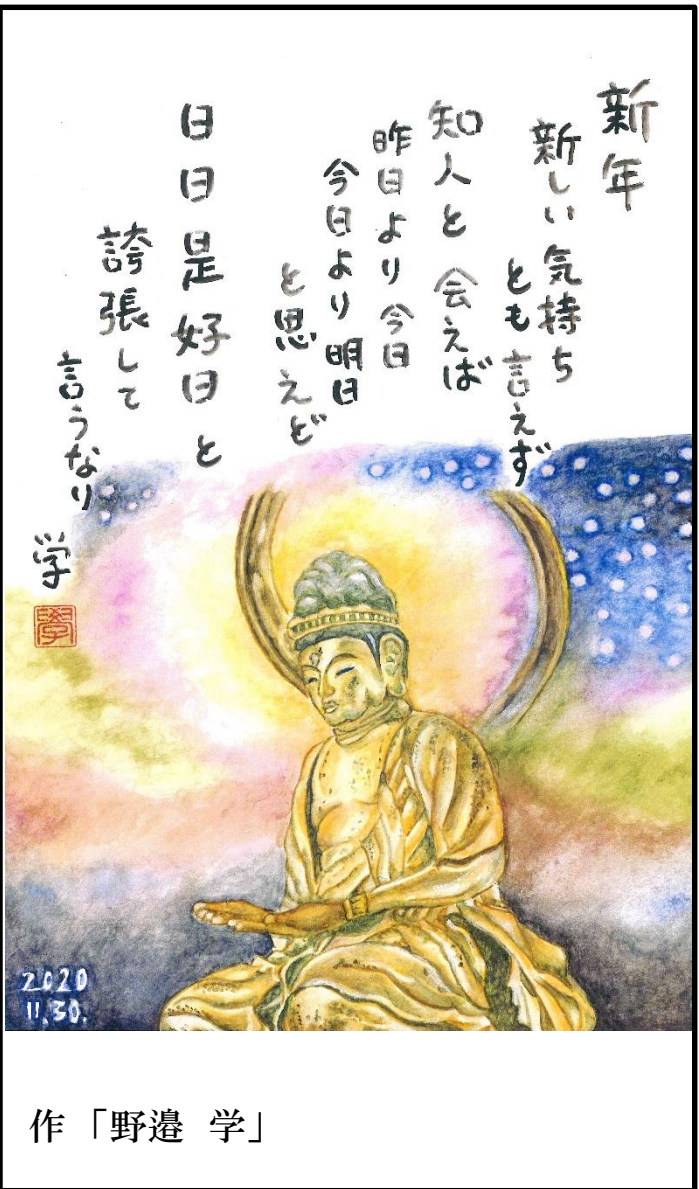 新年
新しい気持ち
とも言えず
知人と会えば
昨日より今日
今日より明日
と思えど
日日是好日と
誇張して
言うなり
学
學
2020
11.30.
作「野邉 学」